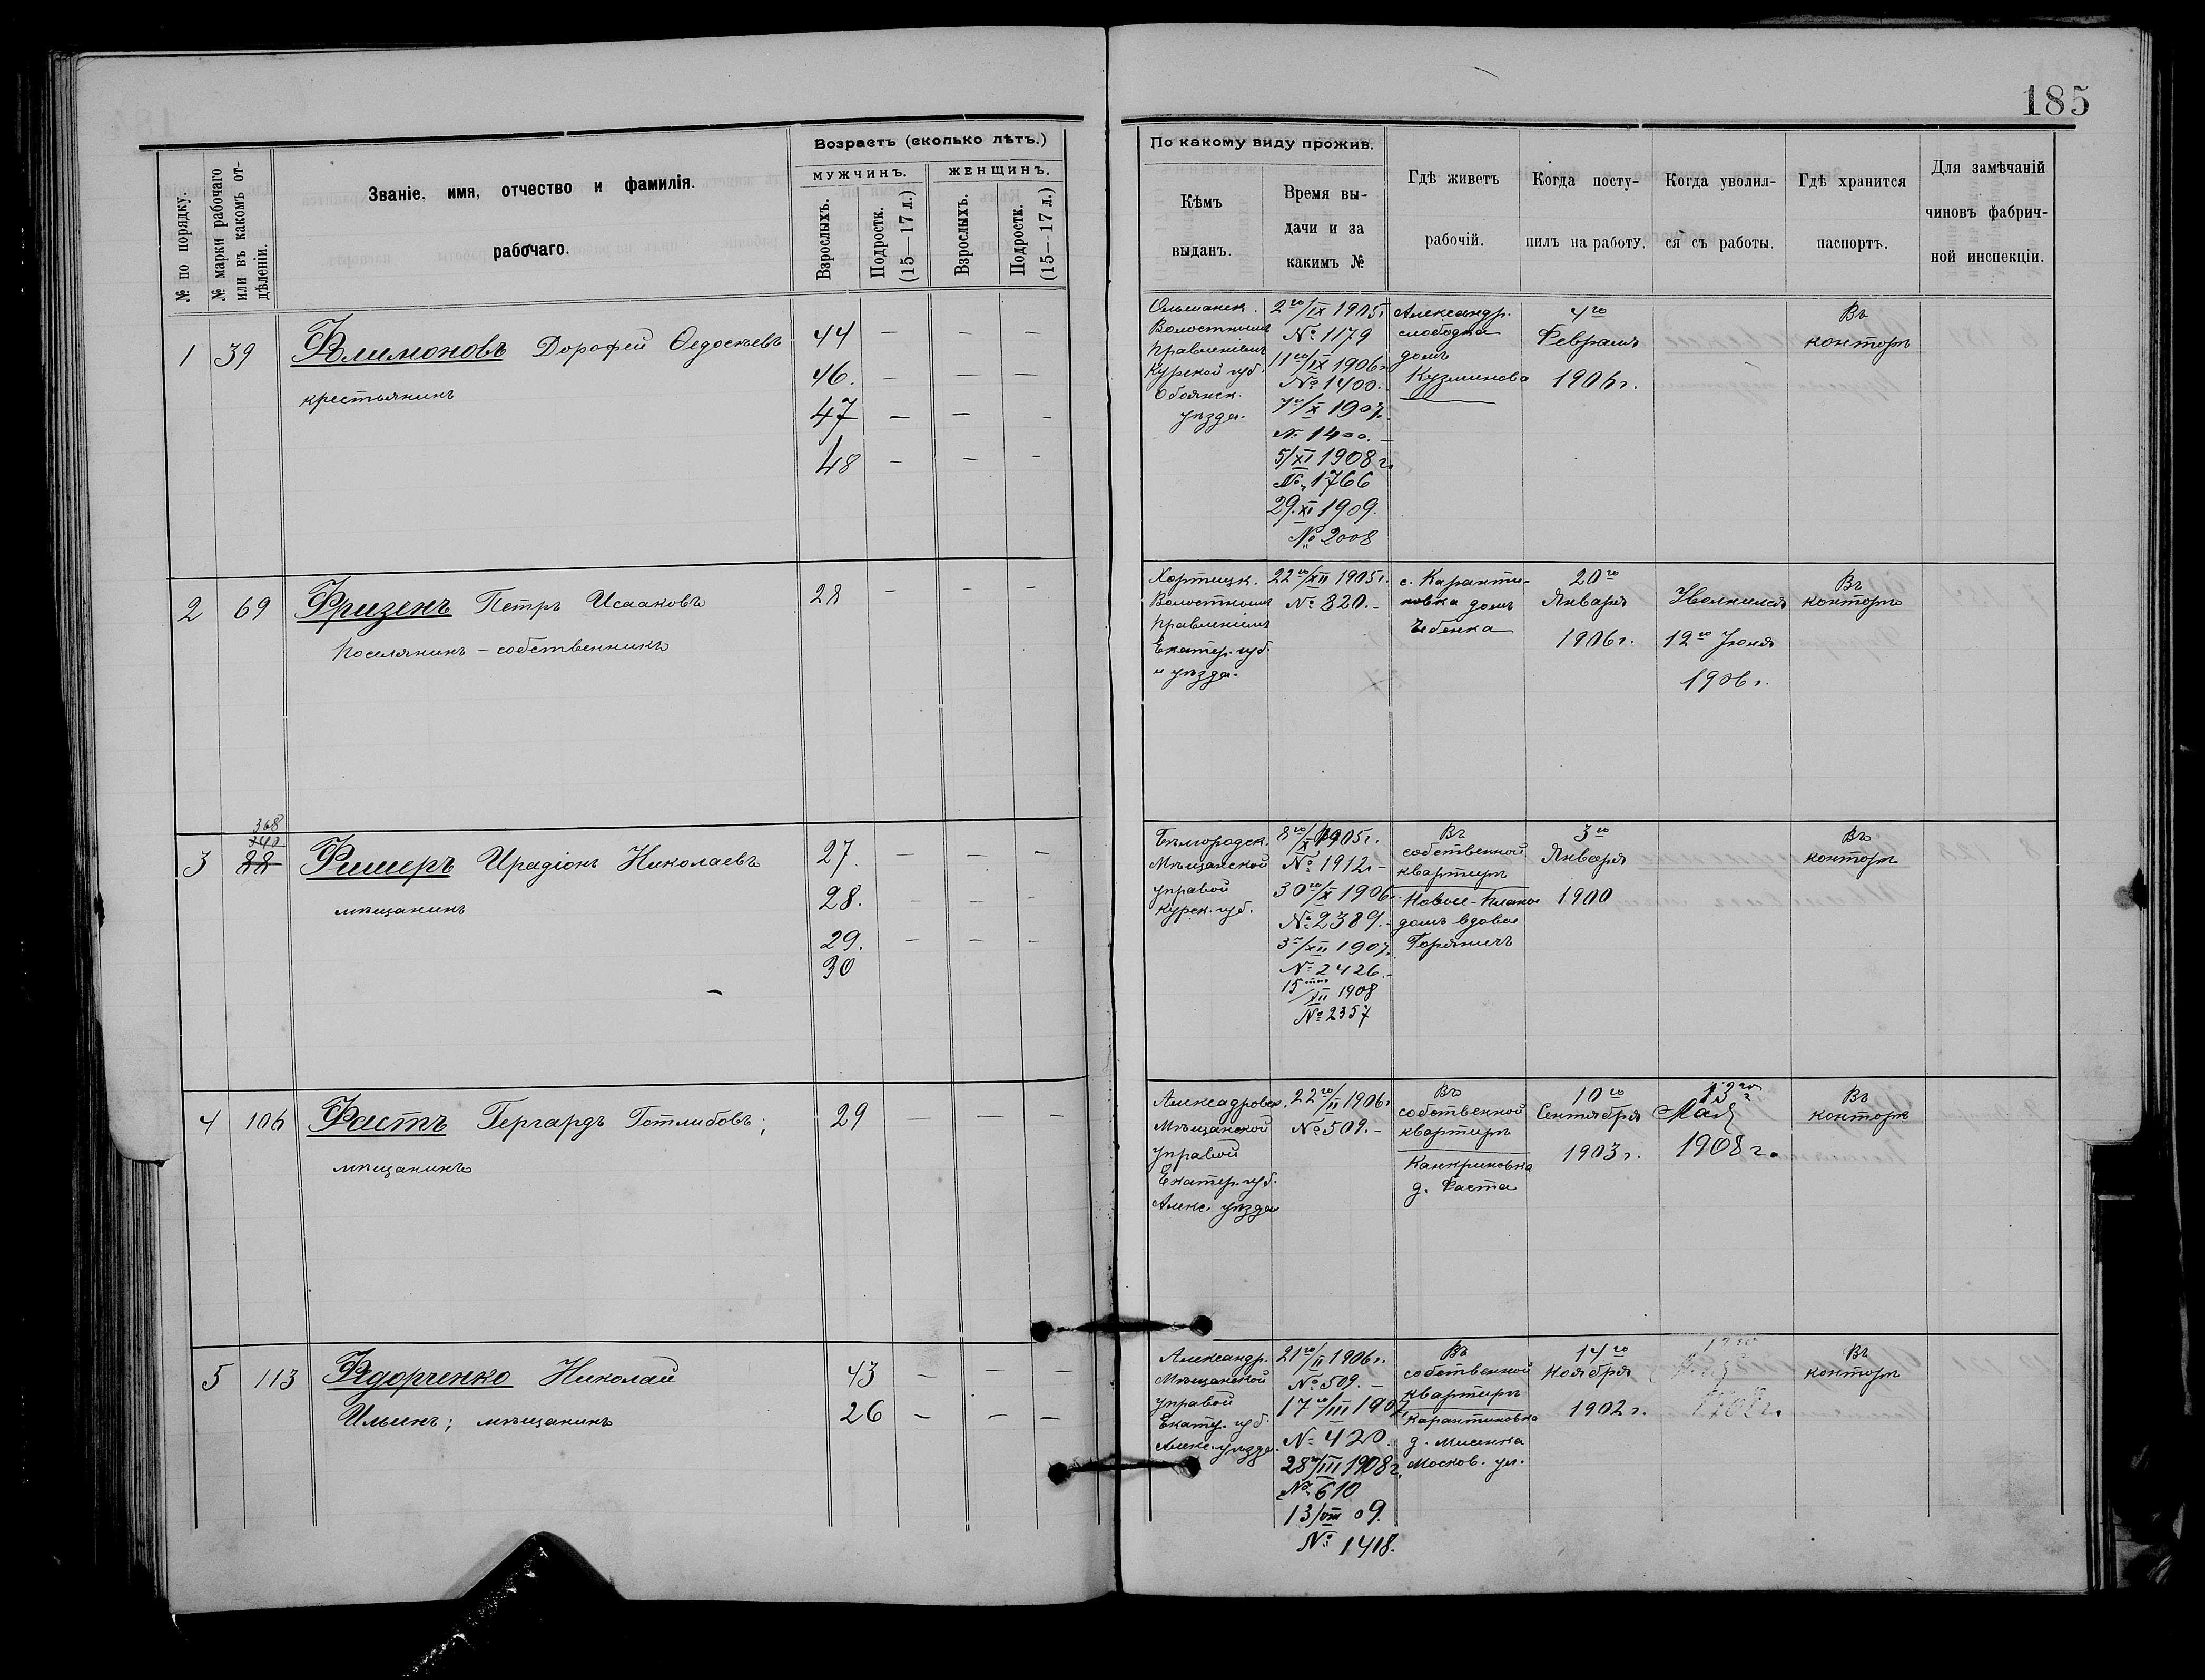 185
№ по порядку.
№ марки рабочаго
или въ какомъ от-
дѣленіи.
Званіе, имя, отчество и фамилія.
рабочаго.
Возрастъ (сколько лѣтъ.)
МУЖЧИНЪ.
ЖЕНЩИНЪ.
Взрослыхъ.
Подростк.
(15—17 л.)
Взрослыхъ.
Подростк.
(15—17 л.)
По какому виду прожив.
Кѣмъ
выданъ.
Время вы-
дачи и за
какимъ №
Гдѣ живетъ
рабочій.
Когда посту-
пилъ на работу.
Когда уволил-
ся съ работы.
Гдѣ хранится
паспортъ.
Для замѣчаній
чиновъ фабрич-
ной инспекціи.
1
39
Филимоновъ Дорофей Ѳедосѣевъ
крестьянинъ
44 — — —
46. — — —
47 — — —
48 — — —
Ольшанск.
Волостнымъ
Правленіемъ
Курской губ.
Обоянск.
уѣзда.
2го/IX 1905г
№ 1179
11го/IX 1906г
№ 1400.
7го/X 1907.
№ 1400. —
5/XI 1908 г.
№ 1766
29.XI 1909.
№ 2008
Александр.
слободка
домъ
Кузминова
4го
Февраля
1906г.
Въ
конторѣ
2
69
Фризенъ Петръ Исааковъ
Поселянинъ – собственникъ
28 — — —
Хортицк.
Волостнымъ
Правленіемъ
Екатер. губ.
и уѣзда.
22го/XII 1905г.
№ 820. –
с. Каранти-
новка домъ
20го
Января
1906г.
12го Іюля
1906г.
Въ
конторѣ
3
368
340
88
Фишеръ Иродіонъ Николаевъ
мѣщанинъ
27. — — —
28. — — —
29. — — —
30
Бѣлгородск.
Мѣщанской
управой
Курск. губ.
8го/XI 1905г.
№ 1912. –
30го/X 1906.
№ 2389. –
3го/XII 1907.
№ 2426. –
15/XII 1908
№ 2357
Въ
собственной
квартирѣ
домъ вдовы
3го
Января
1900
Въ
конторѣ
4
106
Фастъ Гергардъ Готлибовъ;
мѣщанинъ
29 — —
Алексадровск.
Мѣщанской
управой
Екатер. губ.
Алекс. уѣзда
22го/II 1906г
№ 509. –
Въ
собственной
квартирѣ
Канкриновка
д. Фаста
10го
Сентября
1903г.
13го
Мая
1908г.
Въ
конторѣ
5
113
Федорченко Николай
Ильинъ; мѣщанинъ
43 — — —
26 — — —
Александр.
Мѣщанской
управой
Екатер. губ.
Алекс. уѣзда.
21го/II 1906г.
№ 509. –
17го/III 1907.
№ 420.
28го/III 1908г.
№ 610
13/VIII 09.
№ 1418.
Въ
собственной
квартирѣ
Карантиновка
д. Мисенка
Москов. ул.
14го
Ноября
1902г.
13го
1908г.
Въ
конторѣ